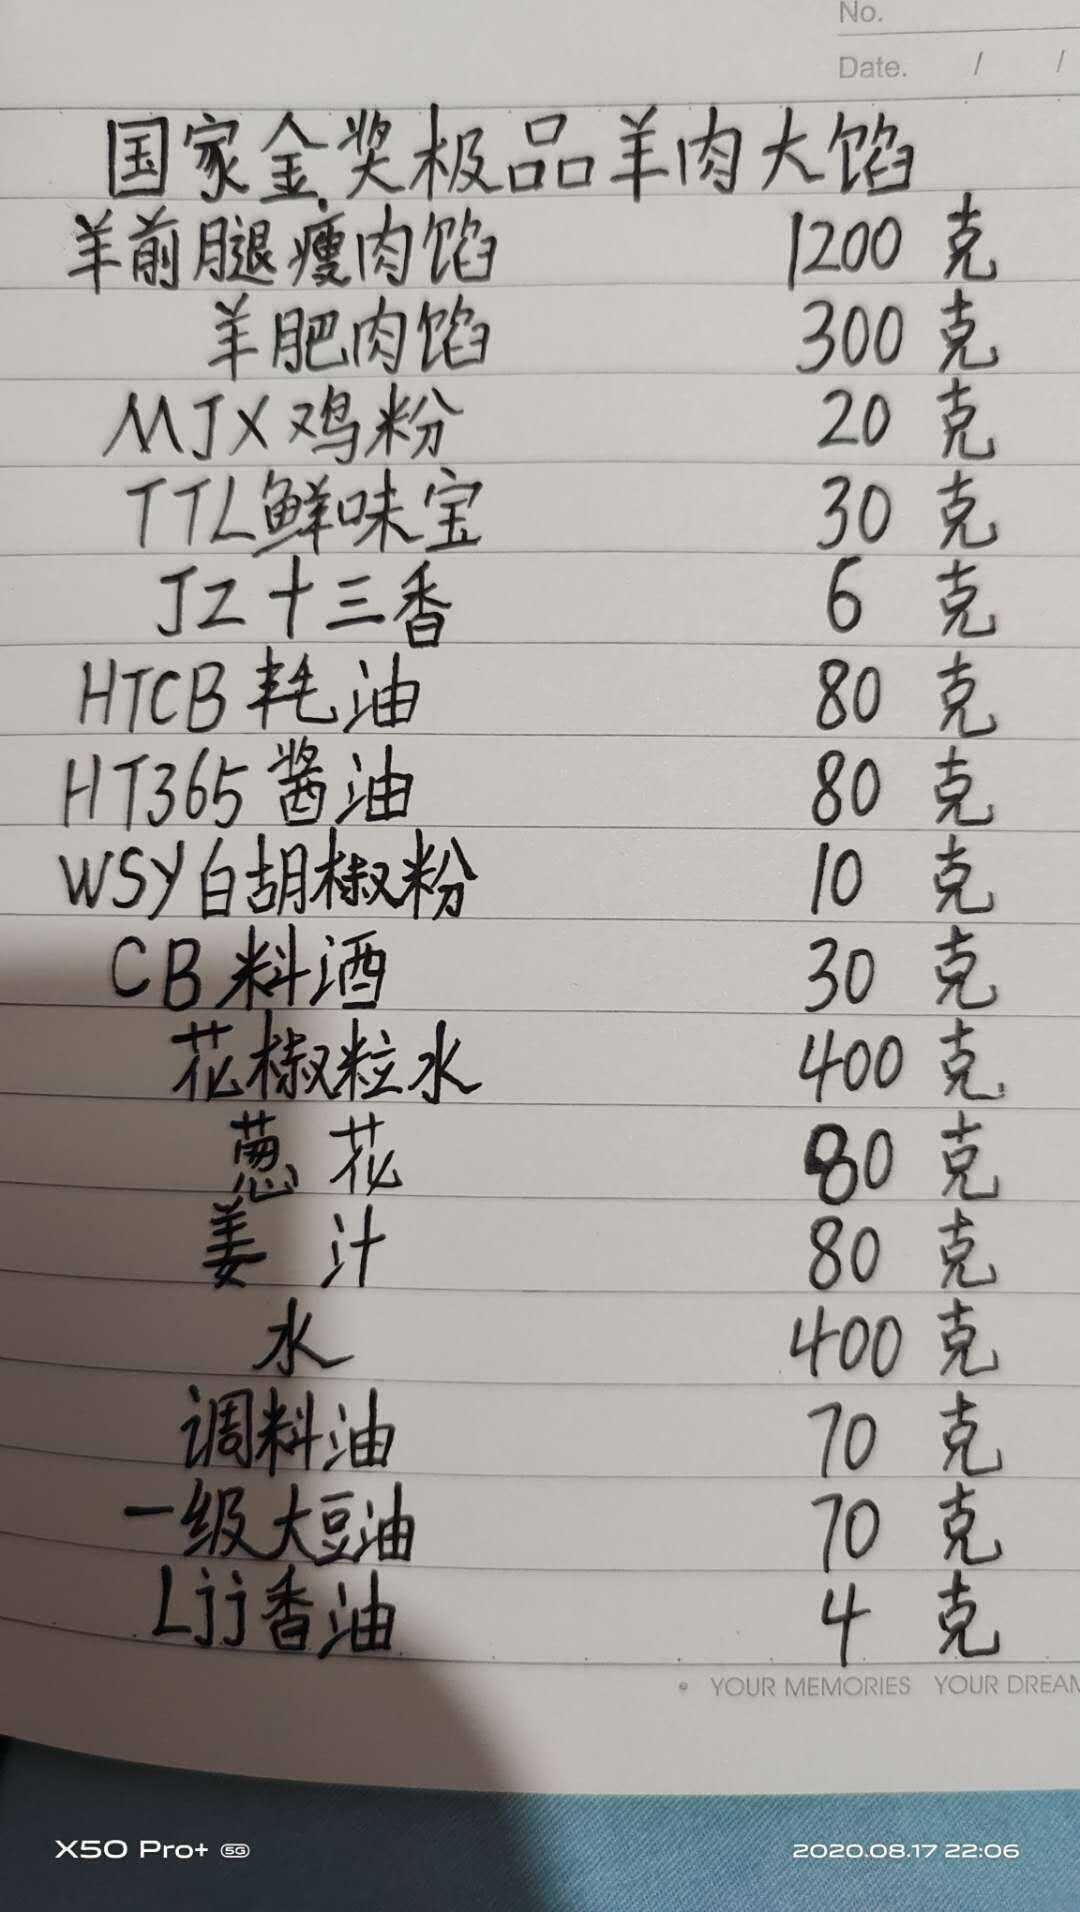 No.
Date. / /
国家金奖极品羊肉大馅
羊前腿瘦肉馅 1200 克
羊肥肉馅 300 克
MJX鸡粉 20 克
TTL鲜味宝 30 克
JZ十三香 6 克
HTCB耗油 80 克
HT365酱油 80 克
WSY白胡椒粉 10 克
CB料酒 30 克
花椒粒水 400 克
葱花 80 克
姜汁 80 克
水 400 克
调料油 70 克
一级大豆油 70 克
Ljj香油 4 克
YOUR MEMORIES YOUR DREAM
X50 Pro+ 5G 2020.08.17 22:06